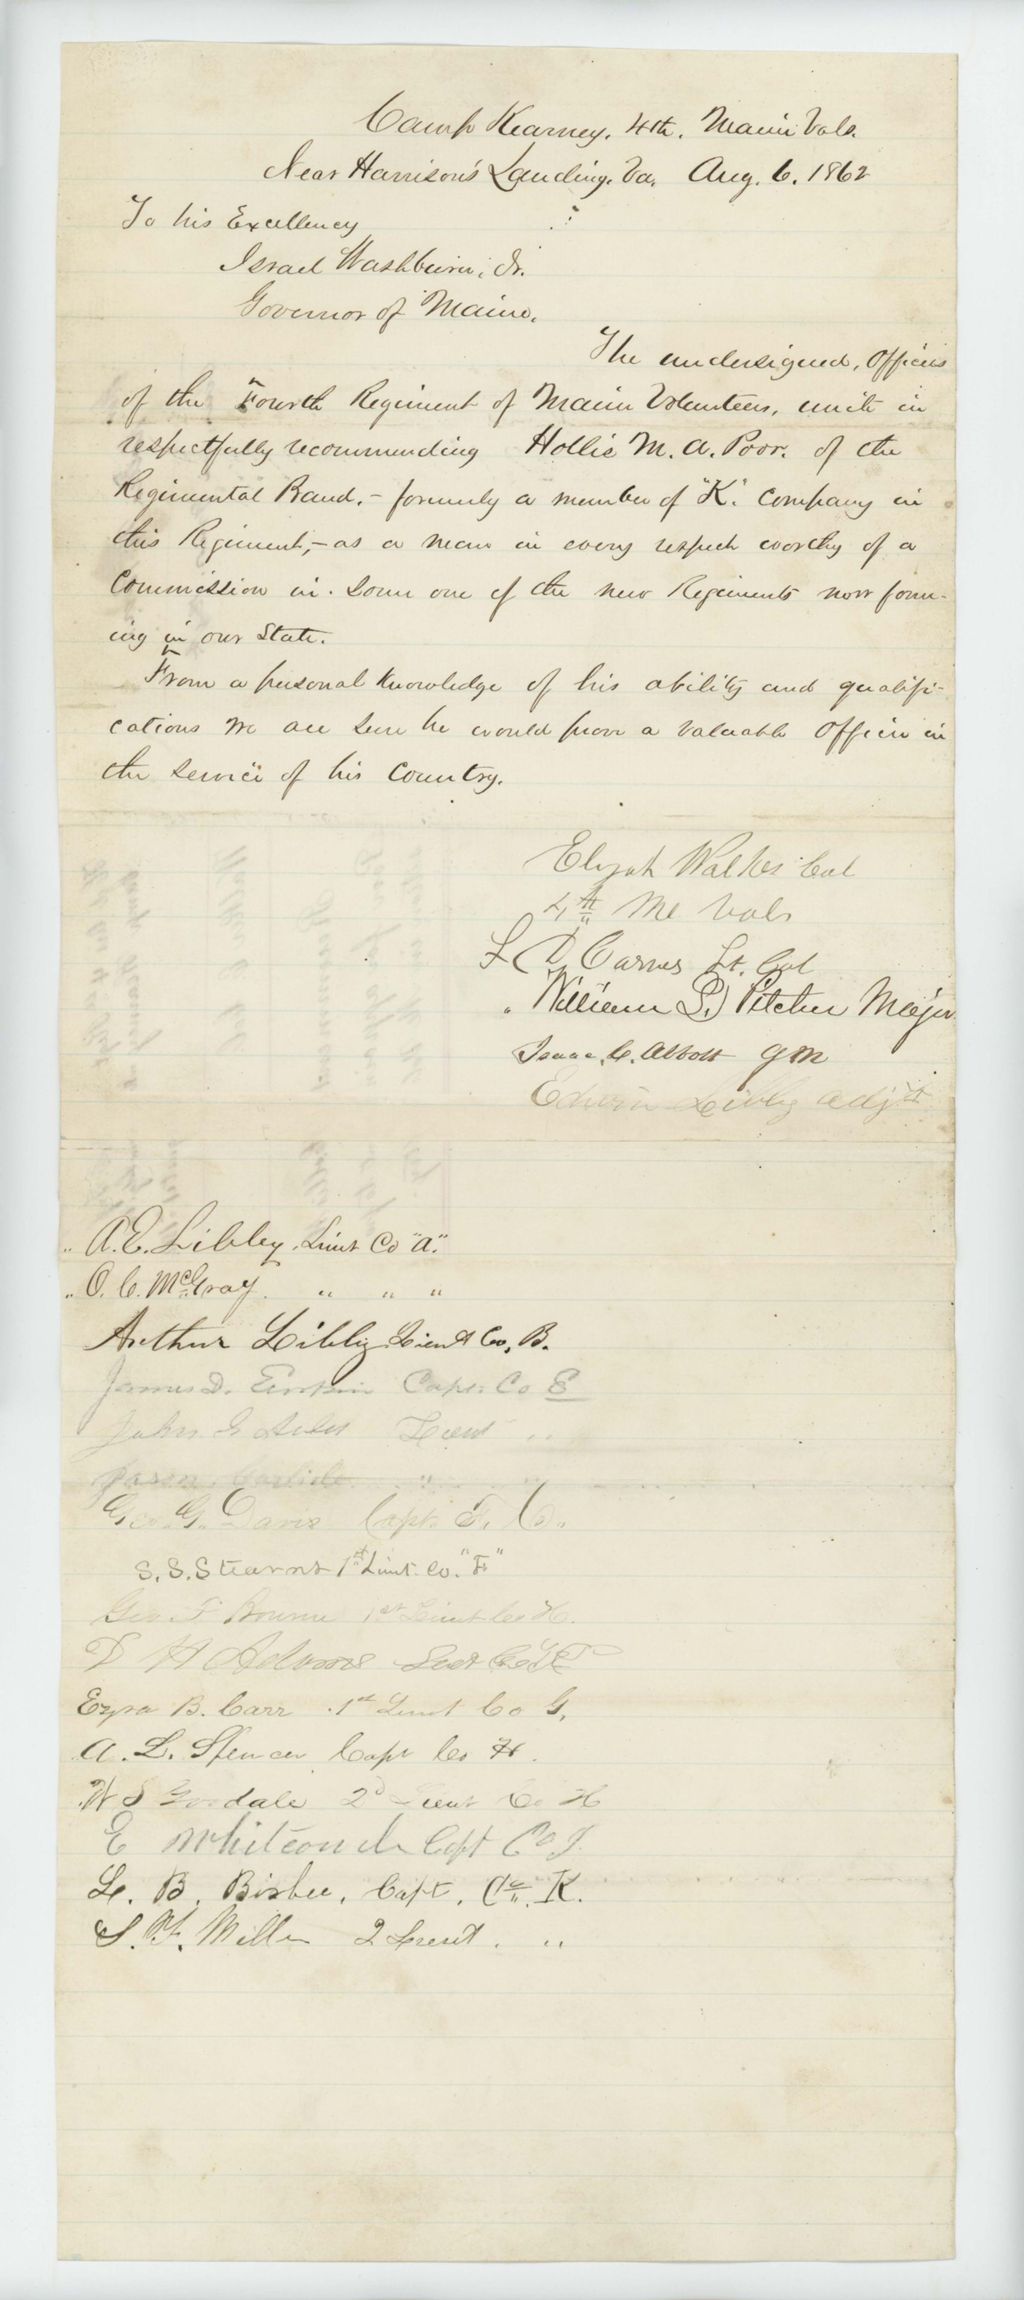 Camp Kearney. 4th. Maine Vols.
Near Harrison's Landing. Va. Aug. 6. 1862
To his Excellency
Israel Washburn, Jr.
Governor of Maine.
The undersigned, Officers
of the Fourth Regiment of Maine Volunteers, unite in
respectfully recommending Hollis M. A. Poor. of the
Regimental Band, - formerly a member of "K" Company in
this Regiment, - as a man in every respect worthy of a
Commission in some one of the new Regiments now form-
ing in our State.
From a personal knowledge of his ability and qualifi-
cations we are sure he would prove a valuable Officer in
the service of his Country.
Elijah Walker Col
4th Me Vols
L D Carver Lt. Col
William L. Pitcher Major
Isaac C. Abbott QM
Edwin Libby Adjt
A. E. Libbey, Lieut Co "A."
O. C. McGray. " " "
Arthur Libby Lieut Co, B.
James D. Erskin Capt. Co E
John G Lieut "
Jason Carlisle " "
Geo. G. Davis Capt. F. Co.
S. S. Stearns 1st Lieut. Co. "F"
Geo. F Bourne 1st Lieut Co H.
D H Adams
Ezra B. Carr 1st Lieut Co G.
A. L. Spencer Capt Co H.
W S Goodale 2d Lieut Co H
E Whitcomb Capt Co I.
L. B. Bisbee, Capt. Co. K.
S. F. Miller 2 Lieut. "